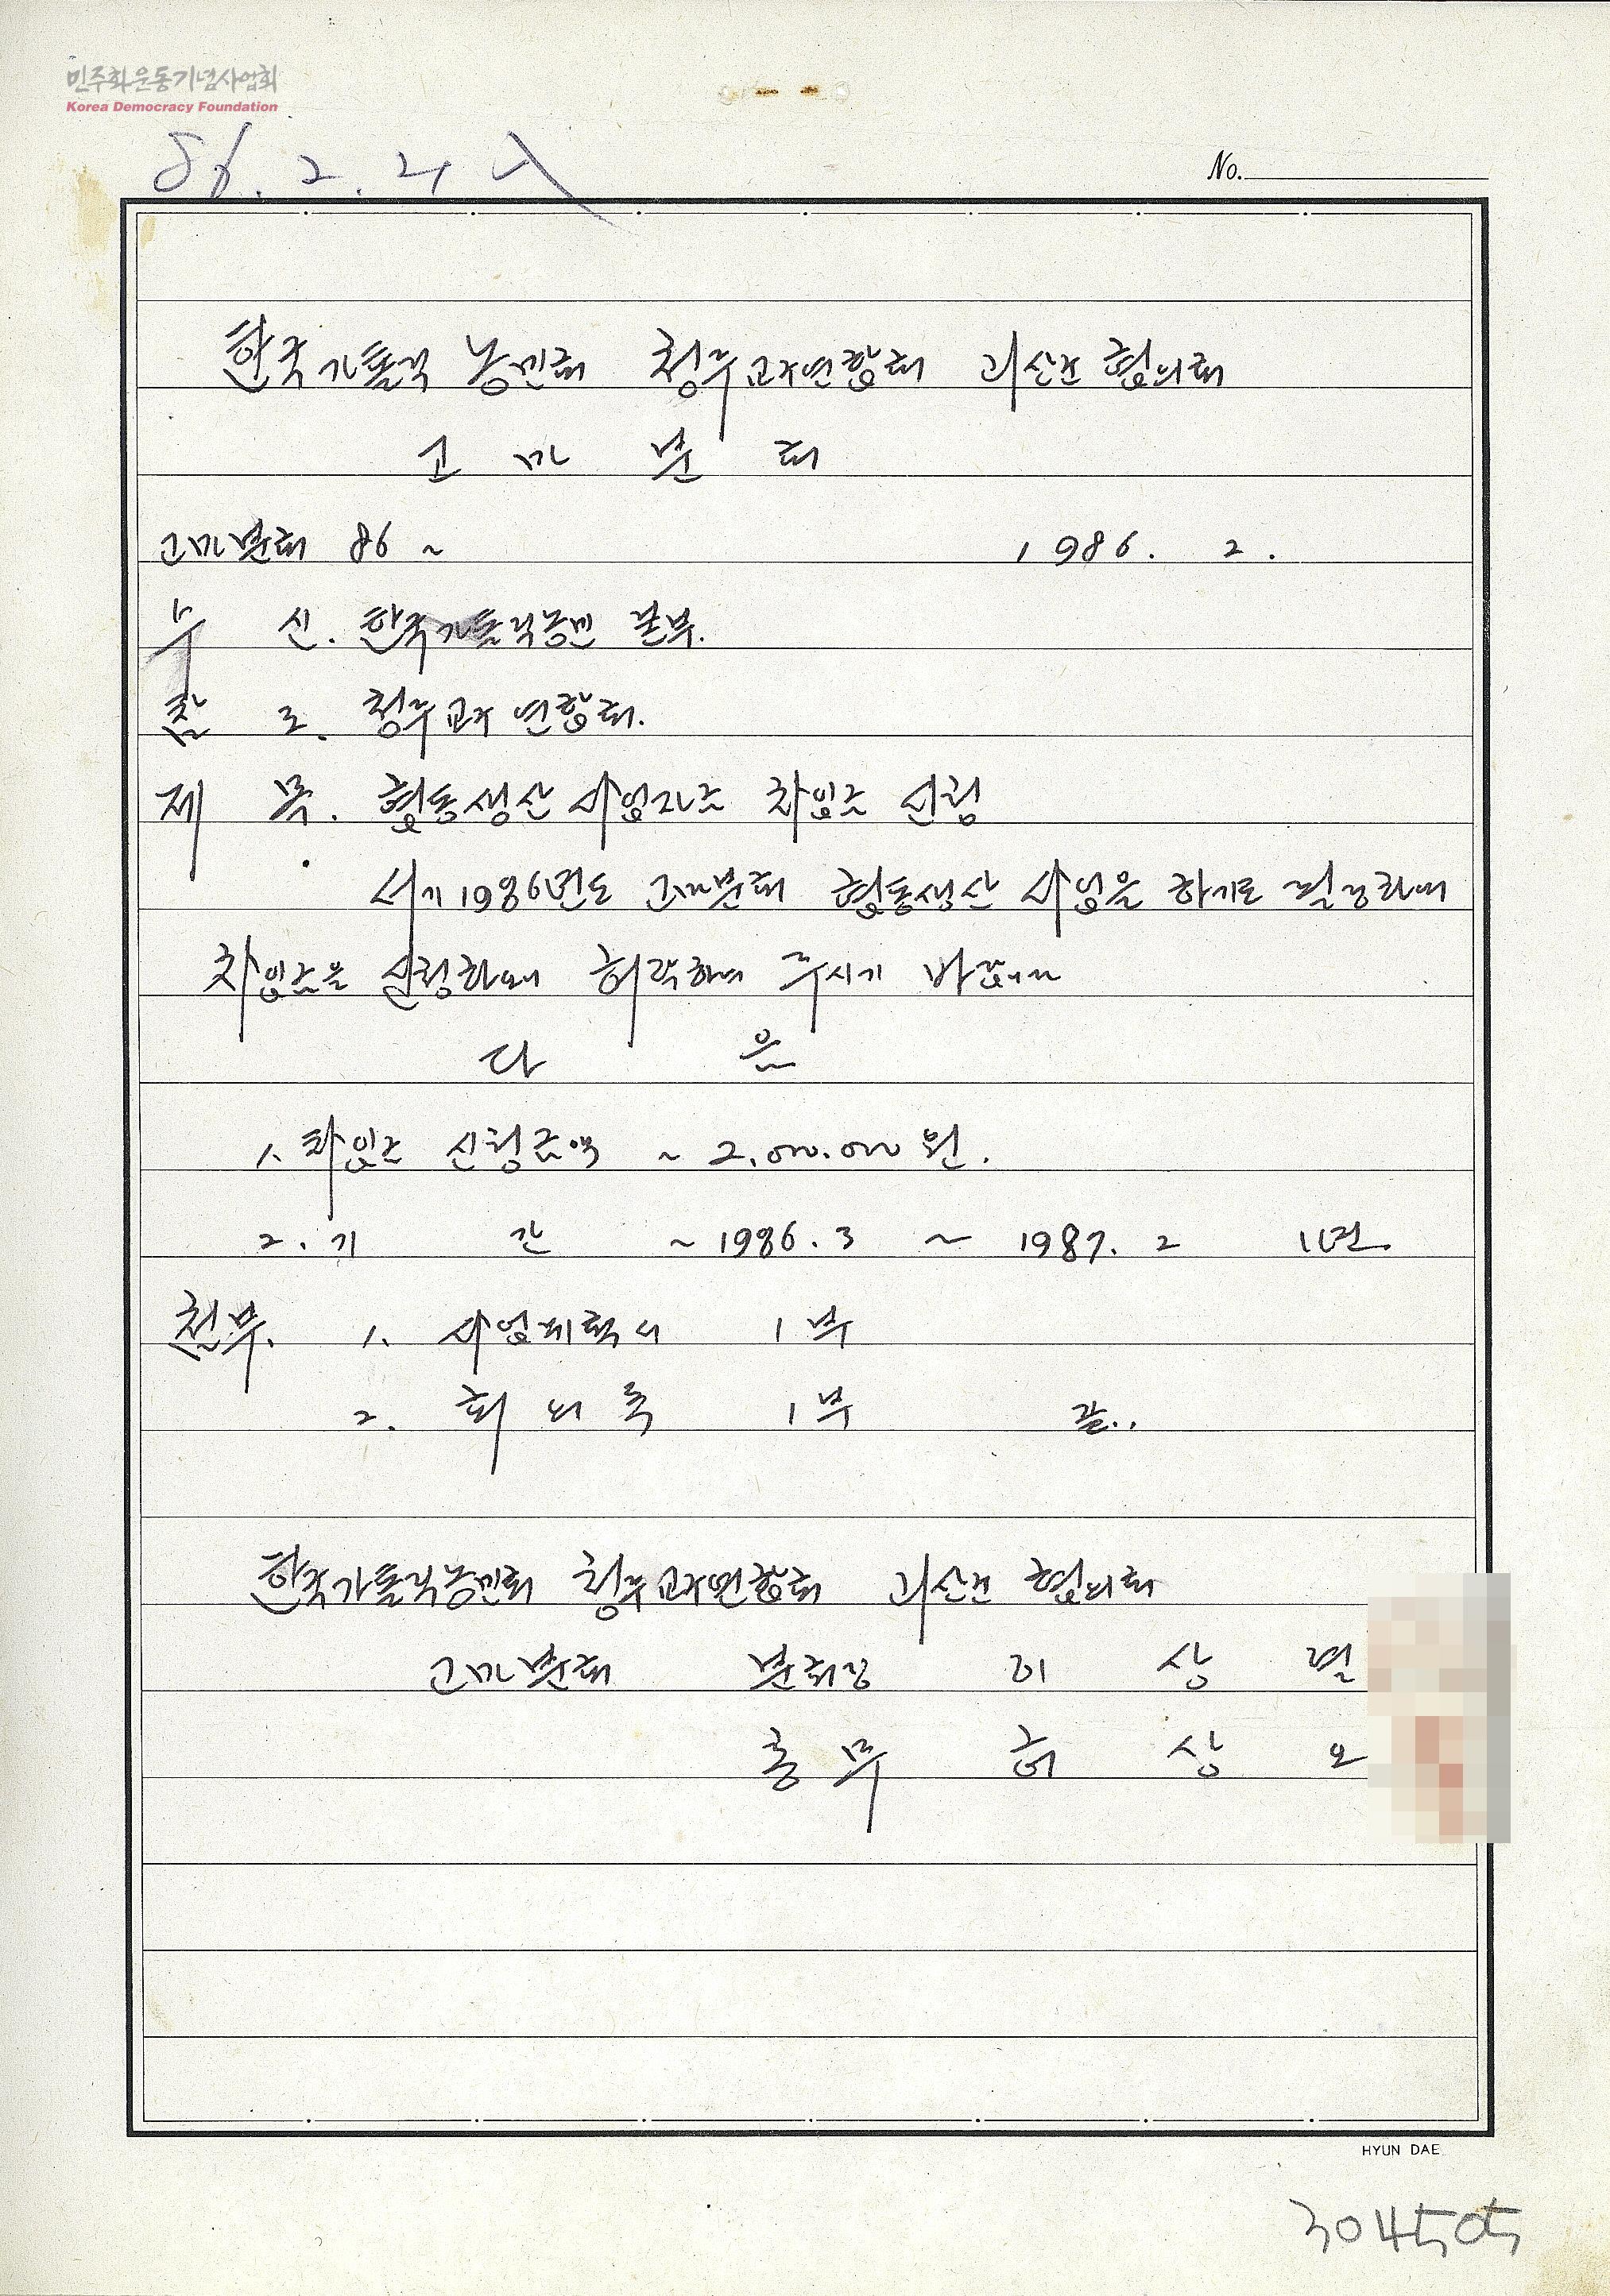 민주화운동기념사업회
Korea Democracy Foundation
86. 2. 21
No.
한국가톨릭 농민회 청주교구연합회 괴산군 협의회
고 미 분 회
고미분회 86 ~ 1986. 2.
수 신. 한국가톨릭농민 본부.
참 조. 청주교구 연합회.
제 목. 협동생산 사업자금 차입금 신청
서기 1986년도 고미분회 협동생산 사업을 하기로 결정하여
차입금을 신청하오니 허락하여 주시기 바랍니다
다 음
1. 차입금 신청금액 ~ 2.000.000 원.
2. 기 간 ~ 1986. 3 ~ 1987. 2 1년.
첨부. 1. 사업계획서 1 부
2. 회의록 1 부 끝..
한국가톨릭농민회 청주교구연합회 괴산군 협의회
고미분회 분회장 이 상 열
총무 허 상 오
HYUN DAE